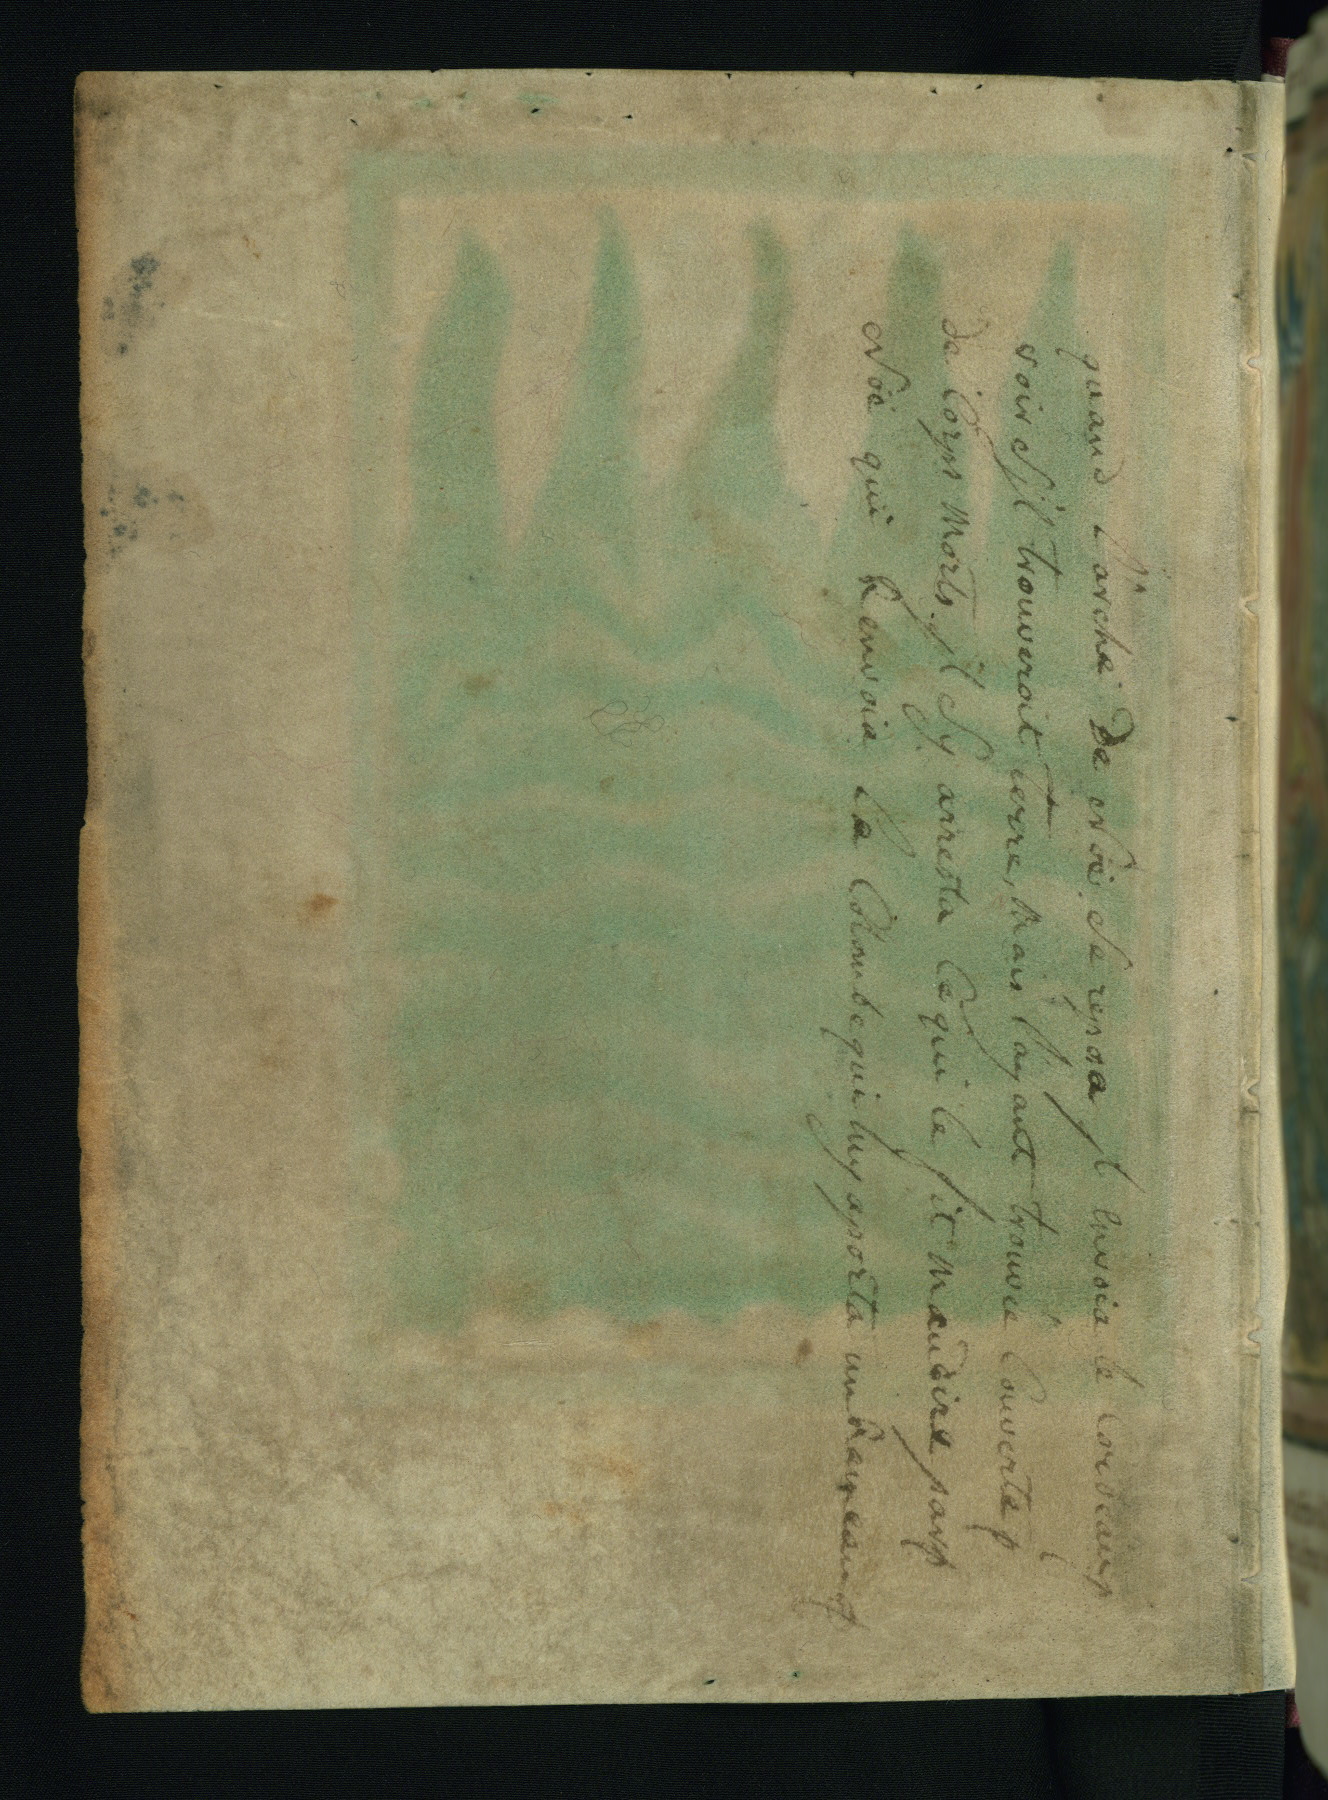 quand L'arche De Noé Se reposa jl envoia le Corbeau p
voir Sjl trouveroit terre, mais l'ayant trouvée Couverte p
de Corps morts, jl Sy arresta Ce qui le fit maudire par
Noé qui Renvoia La Colombe qui luy aporta un Rameau